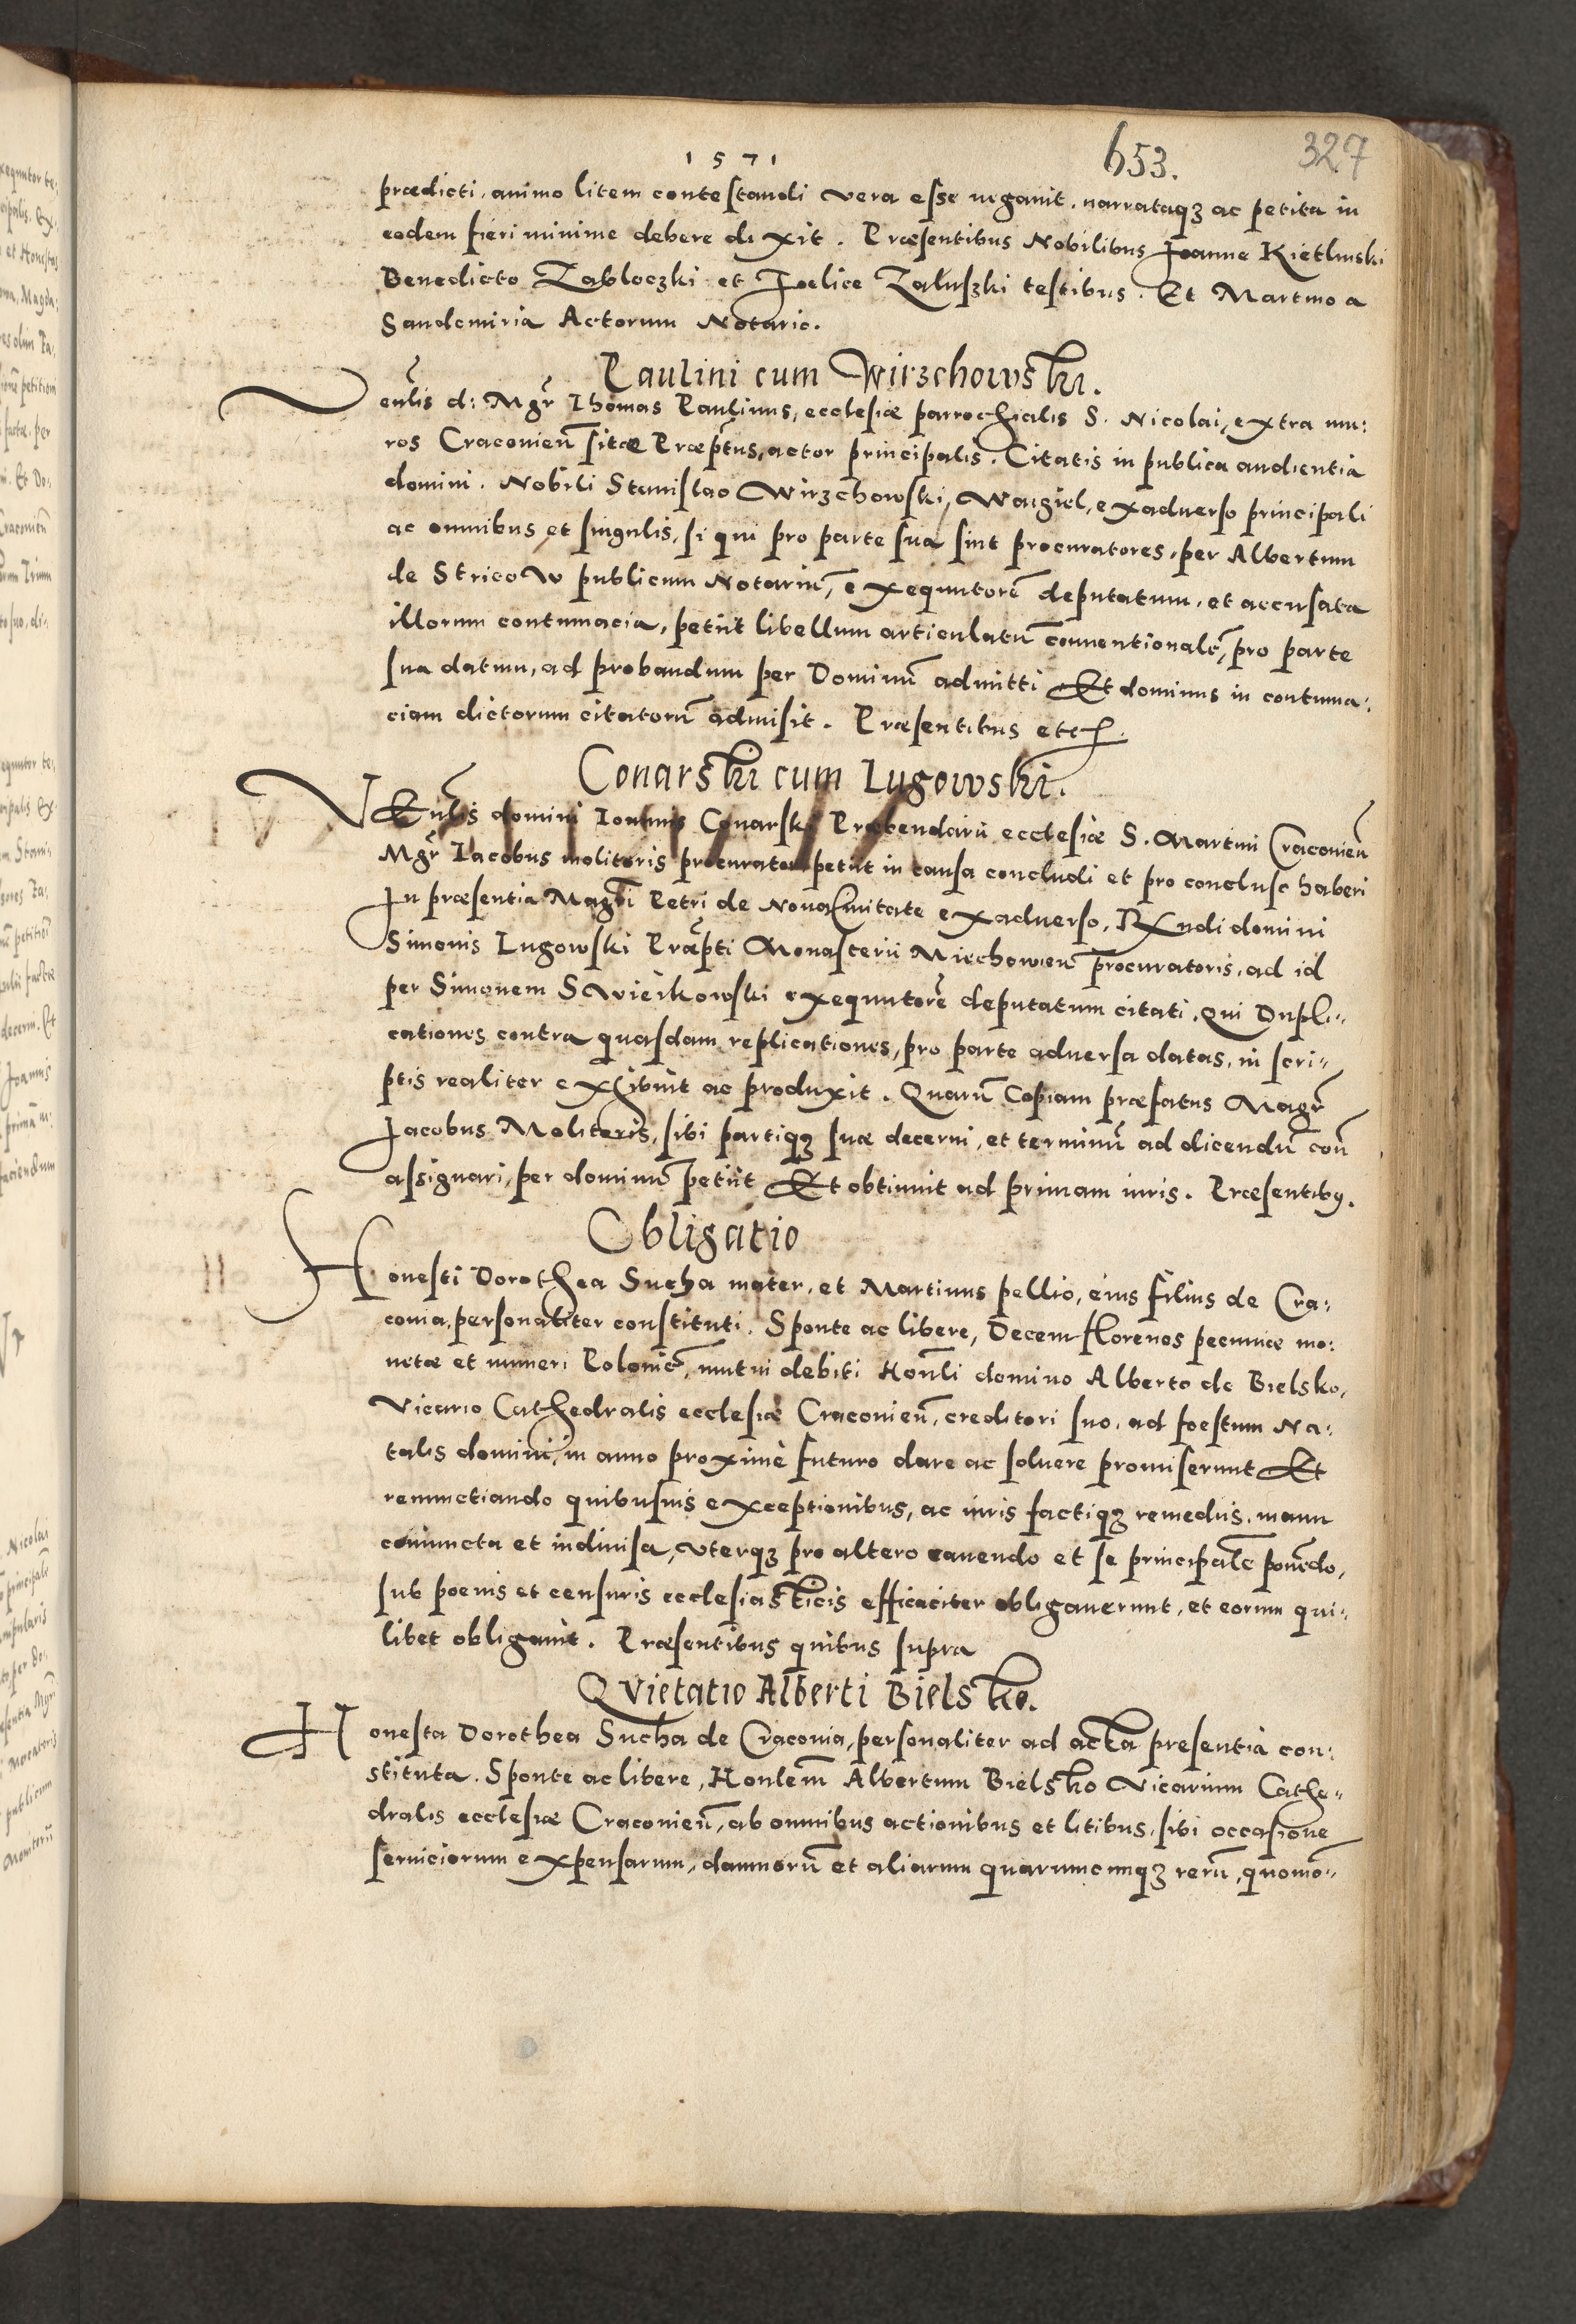 1571
653.
327
prædicti, animo litem contestandi vera esse negauit, narrataqʒ ac petita in
eodem fieri minime debere dixit. Præsentibus Nobilibus Joanne Kietlinski
Benedicto Zabloczki et Foelice Zaluszki testibus. Et Martino a
Sandomiria Actorum Notario.
Paulini cum Wirzchowski.
Venlis d: Mgr Thomas Paulinus, ecclesiæ parrochialis S. Nicolai, extra mu:
ros Craconien̄ sitæ Præptus, actor principalis. Citatis in publica audientia
domini. Nobili Stanislao Wirzchowski, Waigiel, exaduerso principali
ac omnibus et singulis, si qui pro parte sua sint procuratores, per Albertum
de Stricow publicum Notariū, exequutorē deputatum, et accusata
illorum contumacia, petiit libellum articulatū conuentionalē, pro parte
sua datum, ad probandum per Dominū admitti Et dominus in contuma:
ciam dictorum citatorū admisit. Præsentibus etc
Conarski cum Lugowski.
VEnlis domini Ioannis Conarski Præbendarii ecclesiæ S. Martini Craconien̄
Mgr Iacobus molitoris procurator petiit in causa concludi et pro concluso haberi
In præsentia Magri Petri de Nouaciuitate exaduerso, Rndi domini
Simonis Lugowski Præpti Monasterii Miechowien̄ procuratoris, ad id
per Simonem Swierkowski exequutorē deputatum citati. Qui Dupli-
cationes contra quasdam replicationes, pro parte aduersa datas, in scri-
ptis realiter exhibuit ac produxit. Quarū Copiam præfatus Magr
Jacobus Molitoris, sibi partiqʒ suæ decerni, et terminū ad dicendū con̄
assignari, per dominū petiit Et obtinuit ad primam iuris. Præsentibꝰ.
Obligatio
Honesti Dorothea Sucha mater, et Martinus pellio, eius filius de Cra:
couia, personaliter constituti. Sponte ac libere, Decem florenos pecuniæ mo:
netæ et numeri Poloniē, mutui debiti Honli domino Alberto de Bielsko,
Vicario Cathedralis ecclesiæ Craconien̄, creditori suo, ad foestum Na:
talis domini, in anno proxime futuro dare ac soluere promiserunt Et
renunctiando quibusuis exceptionibus, ac iuris factiqʒ remediis, manu
coniuncta et indiuisa, vterqʒ pro altero cauendo et se principalē ponēdo,
sub poenis et censuris ecclesiasticis efficaciter obligauerunt, et eorum qui-
libet obligauit. Præsentibus quibus supra
Qvietatio Alberti Bielsko.
Honesta Dorothea Sucha de Cracouia, personaliter ad acta presentia con:
stituta. Sponte ac libere, Honlem Albertum Bielsko Vicarium Cathe-
dralis ecclesiæ Craconien̄, ab omnibus actionibus et litibus, sibi occasione
seruiciorum expensarum, damnorū et aliarum quarumcunqʒ rerū, quomō-